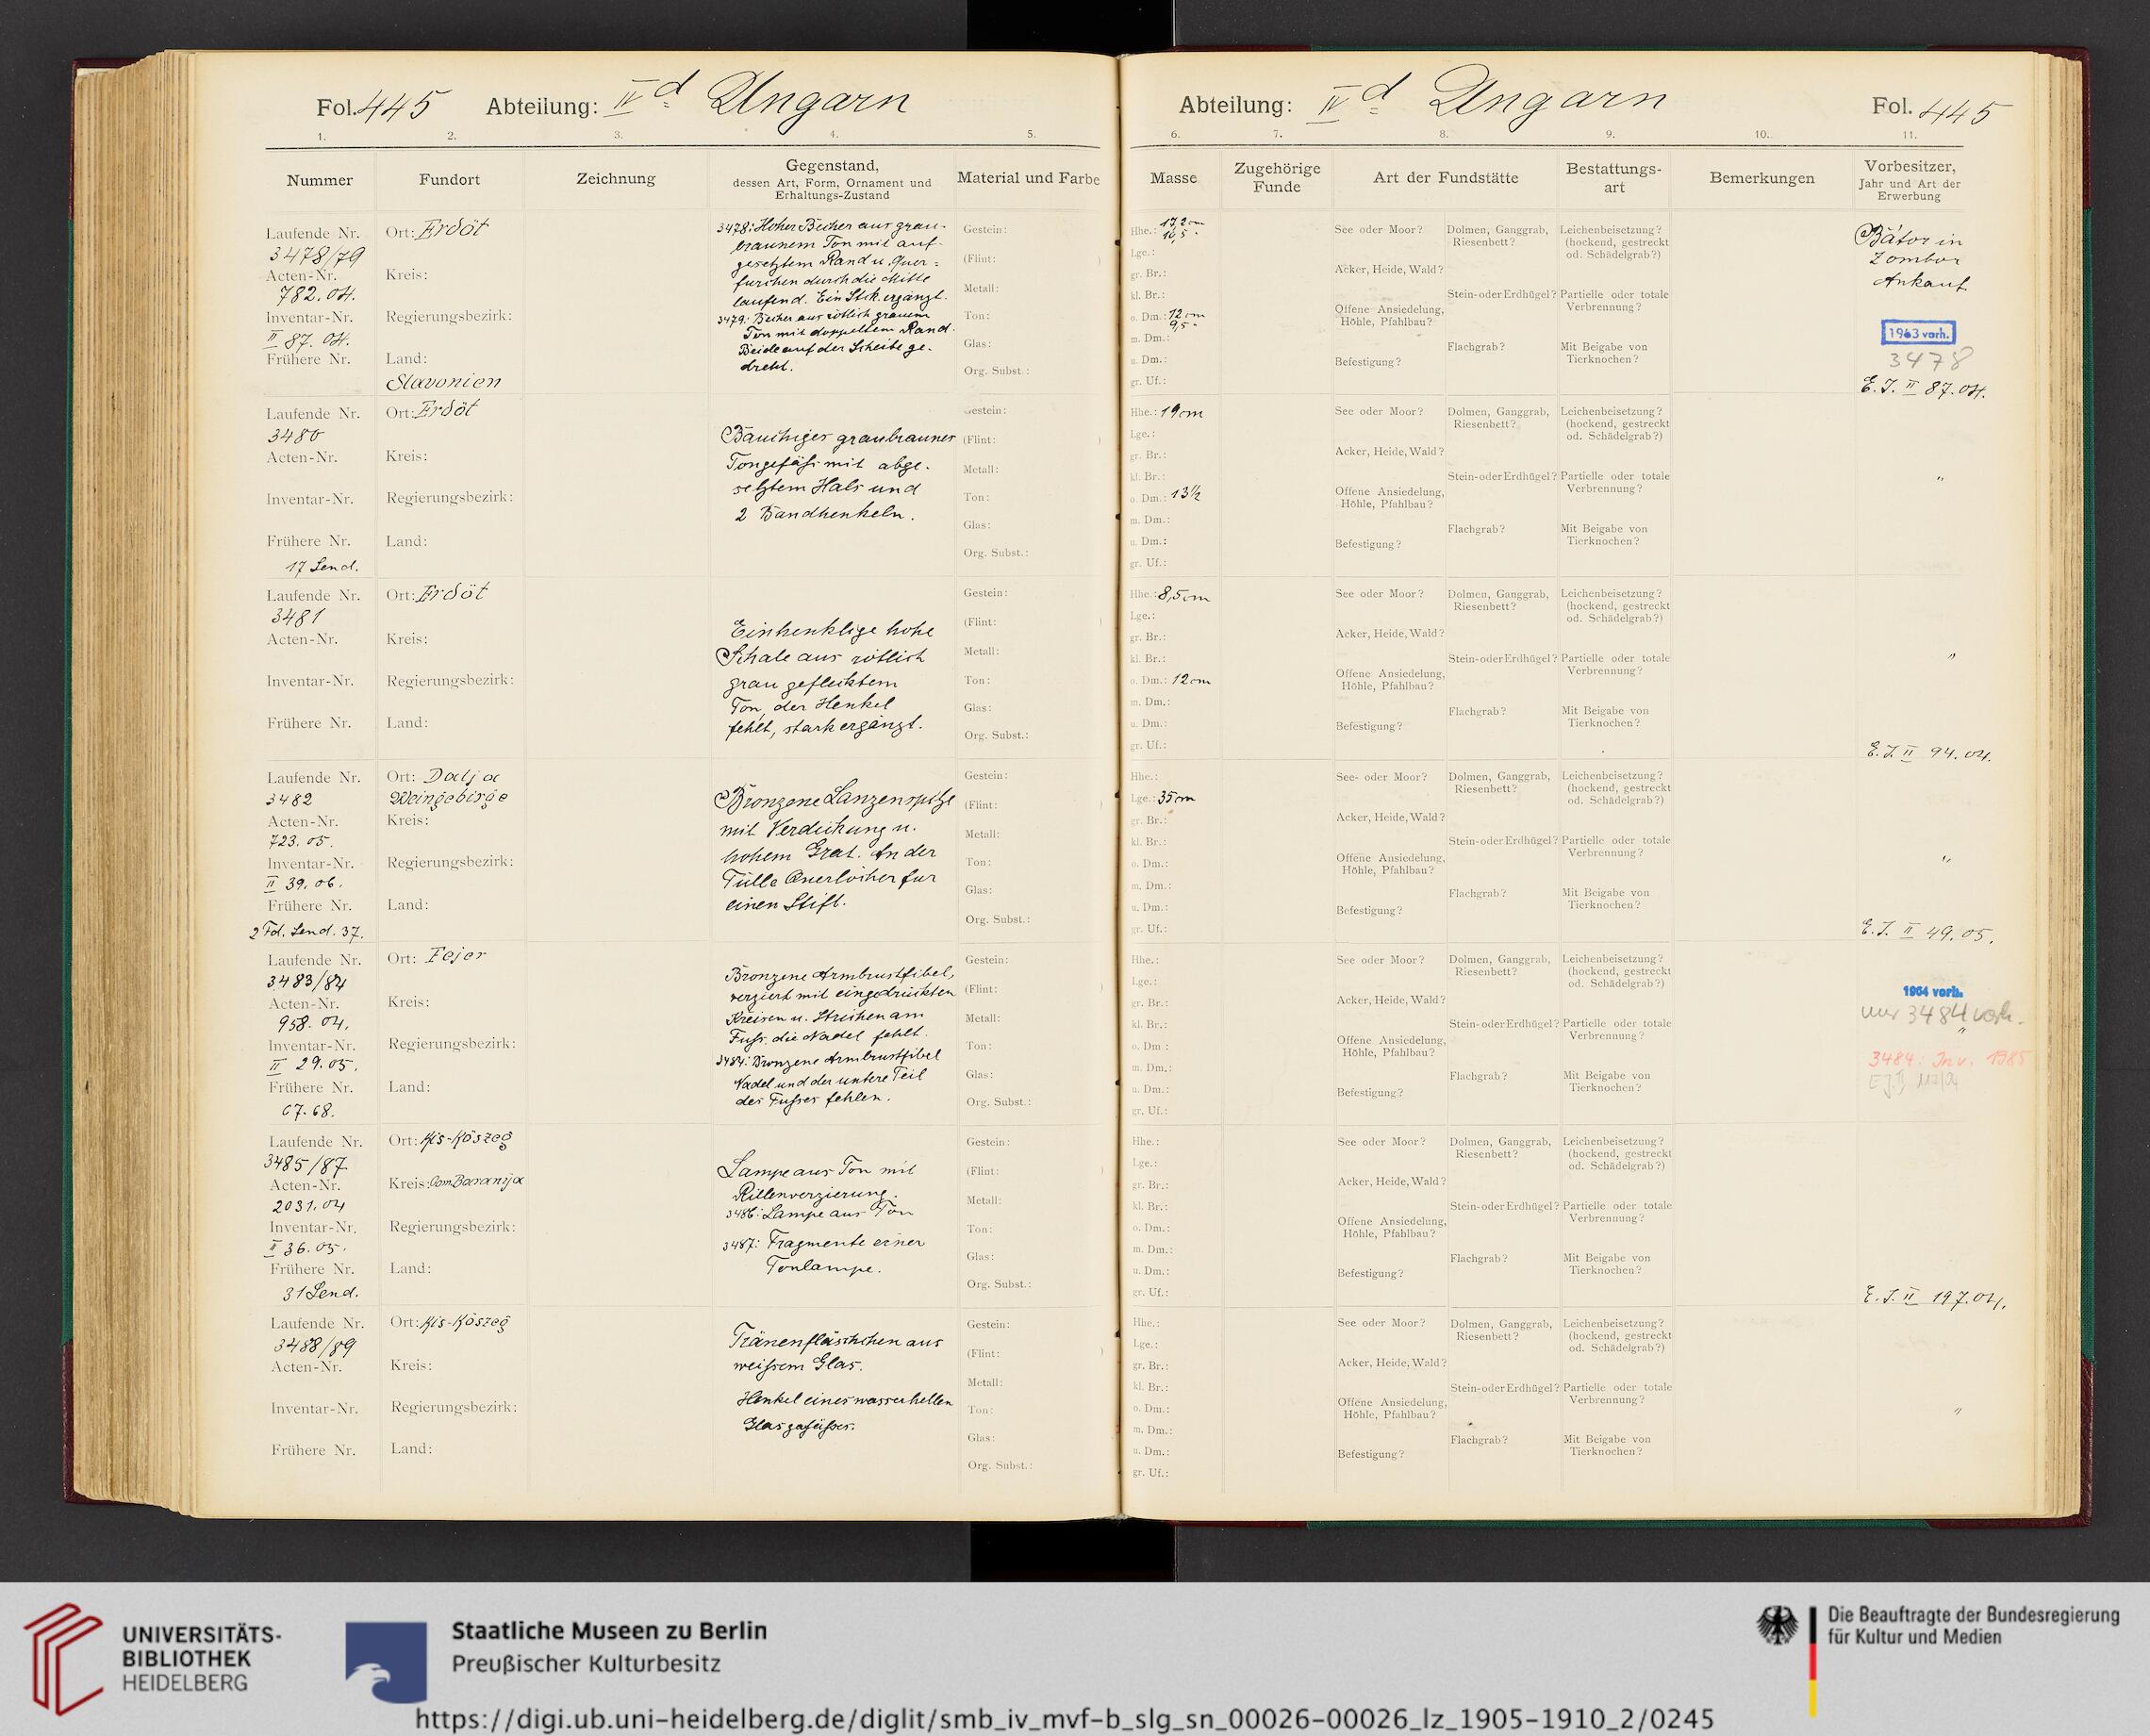 Fol. 445 Abteilung: IV d Ungarn
1. 2. 3. 4. 5.
Nummer Fundort Zeichnung Gegenstand, dessen Art, Form, Ornament und Erhaltungs-Zustand Material und Farbe
Laufende Nr. 3478/79
Acten-Nr. 782.04.
Inventar-Nr. II 87.04.
Frühere Nr.
Ort: Erdöt
Kreis:
Regierungsbezirk:
Land: Slavonien
3478: Hoher Becher aus grau-
braunem Ton mit auf-
gesetztem Rand u. Quer-
furchen durch die Mitte
laufend. Ein Stck. ergänzt.
3479: Becher aus rötlich grauem
Ton mit doppeltem Rand.
Beide auf der Scheibe ge-
dreht.
Gestein:
(Flint: )
Metall:
Ton:
Glas:
Org. Subst.:
Laufende Nr. 3480
Acten-Nr.
Inventar-Nr.
Frühere Nr. 17 Send.
Ort: Erdöt
Kreis:
Regierungsbezirk:
Land:
Bauchiges graubraunes
Tongefäß mit abge-
setztem Hals und
2 Bandhenkeln.
Gestein:
(Flint: )
Metall:
Ton:
Glas:
Org. Subst.:
Laufende Nr. 3481
Acten-Nr.
Inventar-Nr.
Frühere Nr.
Ort: Erdöt
Kreis:
Regierungsbezirk:
Land:
Einhenklige hohe
Schale aus rötlich
grau geflecktem
Ton, der Henkel
fehlt, stark ergänzt.
Gestein:
(Flint: )
Metall:
Ton:
Glas:
Org. Subst.:
Laufende Nr. 3482
Acten-Nr. 723.05.
Inventar-Nr. II 39.06.
Frühere Nr. 2 Fd. Send. 37.
Ort: Dalja
Weingebirge
Kreis:
Regierungsbezirk:
Land:
Bronzene Lanzenspitze
mit Verdickung u.
hohem Grat. An der
Tülle Querlöcher für
einen Stift.
Gestein:
(Flint: )
Metall:
Ton:
Glas:
Org. Subst.:
Laufende Nr. 3483/84
Acten-Nr. 958.04.
Inventar-Nr. II 29.05.
Frühere Nr. 67.68.
Ort: Fejer
Kreis:
Regierungsbezirk:
Land:
Bronzene Armbrustfibel,
verziert mit eingedrückten
Kreisen u. Strichen am
Fuss, die Nadel fehlt.
3484: Bronzene Armbrustfibel
Nadel und der untere Teil
des Fußes fehlen.
Gestein:
(Flint: )
Metall:
Ton:
Glas:
Org. Subst.:
Laufende Nr. 3485/87
Acten-Nr. 2031.04
Inventar-Nr. II 36.05.
Frühere Nr. 31 Send.
Ort: Kis-Köszeg
Kreis: Com. Baranija
Regierungsbezirk:
Land:
Lampe aus Ton mit
Rillenverzierung.
3486: Lampe aus Ton
3487: Fragmente einer
Tonlampe.
Gestein:
(Flint: )
Metall:
Ton:
Glas:
Org. Subst.:
Laufende Nr. 3488/89
Acten-Nr.
Inventar-Nr.
Frühere Nr.
Ort: Kis-Köszeg
Kreis:
Regierungsbezirk:
Land:
Tränenfläschchen aus
weißem Glas.
Henkel eines wasserhellen
Glasgefäßes.
Gestein:
(Flint: )
Metall:
Ton:
Glas:
Org. Subst.:
Abteilung: IV d Ungarn Fol. 445
6. 7. 8. 9. 10. 11.
Masse Zugehörige Funde Art der Fundstätte Bestattungs-art Bemerkungen Vorbesitzer, Jahr und Art der Erwerbung
Hhe.:
Lge.:
gr. Br.:
kl. Br.:
o. Dm.: 12 cm
9,5 "
m. Dm.:
u. Dm.:
gr. Uf.:
See oder Moor?
Acker, Heide, Wald?
Offene Ansiedelung, Höhle, Pfahlbau?
Befestigung?
Dolmen, Ganggrab, Riesenbett?
Stein- oder Erdhügel?
Flachgrab?
Leichenbeisetzung? (hockend, gestreckt od. Schädelgrab?)
Partielle oder totale Verbrennung?
Mit Beigabe von Tierknochen?
Bátor in
Zombor
Ankauf
1963 vorh.
3478
E.J. II 87.04.
Hhe.: 19 cm
Lge.:
gr. Br.:
kl. Br.:
o. Dm.: 13½
m. Dm.:
u. Dm.:
gr. Uf.:
See oder Moor?
Acker, Heide, Wald?
Offene Ansiedelung, Höhle, Pfahlbau?
Befestigung?
Dolmen, Ganggrab, Riesenbett?
Stein- oder Erdhügel?
Flachgrab?
Leichenbeisetzung? (hockend, gestreckt od. Schädelgrab?)
Partielle oder totale Verbrennung?
Mit Beigabe von Tierknochen?
"
Hhe.: 8,5 cm
Lge.:
gr. Br.:
kl. Br.:
o. Dm.: 12 cm
m. Dm.:
u. Dm.:
gr. Uf.:
See oder Moor?
Acker, Heide, Wald?
Offene Ansiedelung, Höhle, Pfahlbau?
Befestigung?
Dolmen, Ganggrab, Riesenbett?
Stein- oder Erdhügel?
Flachgrab?
Leichenbeisetzung? (hockend, gestreckt od. Schädelgrab?)
Partielle oder totale Verbrennung?
Mit Beigabe von Tierknochen?
"
E.J. II 94.04.
Hhe.:
Lge.: 35 cm
gr. Br.:
kl. Br.:
o. Dm.:
m. Dm.:
u. Dm.:
gr. Uf.:
See- oder Moor?
Acker, Heide, Wald?
Offene Ansiedelung, Höhle, Pfahlbau?
Befestigung?
Dolmen, Ganggrab, Riesenbett?
Stein- oder Erdhügel?
Flachgrab?
Leichenbeisetzung? (hockend, gestreckt od. Schädelgrab?)
Partielle oder totale Verbrennung?
Mit Beigabe von Tierknochen?
"
E.J. II 49.05.
Hhe.:
Lge.:
gr. Br.:
kl. Br.:
o. Dm.:
m. Dm.:
u. Dm.:
gr. Uf.:
See oder Moor?
Acker, Heide, Wald?
Offene Ansiedelung, Höhle, Pfahlbau?
Befestigung?
Dolmen, Ganggrab, Riesenbett?
Stein- oder Erdhügel?
Flachgrab?
Leichenbeisetzung? (hockend, gestreckt od. Schädelgrab?)
Partielle oder totale Verbrennung?
Mit Beigabe von Tierknochen?
1964 vorh.
nur 3484 vorh.
"
3484: Inv. 1985
Hhe.:
Lge.:
gr. Br.:
kl. Br.:
o. Dm.:
m. Dm.:
u. Dm.:
gr. Uf.:
See oder Moor?
Acker, Heide, Wald?
Offene Ansiedelung, Höhle, Pfahlbau?
Befestigung?
Dolmen, Ganggrab, Riesenbett?
Stein- oder Erdhügel?
Flachgrab?
Leichenbeisetzung? (hockend, gestreckt od. Schädelgrab?)
Partielle oder totale Verbrennung?
Mit Beigabe von Tierknochen?
E.J. II 197.04.
Hhe.:
Lge.:
gr. Br.:
kl. Br.:
o. Dm.:
m. Dm.:
u. Dm.:
gr. Uf.:
See oder Moor?
Acker, Heide, Wald?
Offene Ansiedelung, Höhle, Pfahlbau?
Befestigung?
Dolmen, Ganggrab, Riesenbett?
Stein- oder Erdhügel?
Flachgrab?
Leichenbeisetzung? (hockend, gestreckt od. Schädelgrab?)
Partielle oder totale Verbrennung?
Mit Beigabe von Tierknochen?
"
UNIVERSITÄTS-
BIBLIOTHEK
HEIDELBERG
Staatliche Museen zu Berlin
Preußischer Kulturbesitz
Die Beauftragte der Bundesregierung
für Kultur und Medien
https://digi.ub.uni-heidelberg.de/diglit/smb_iv_mvf-b_slg_sn_00026-00026_lz_1905-1910_2/0245